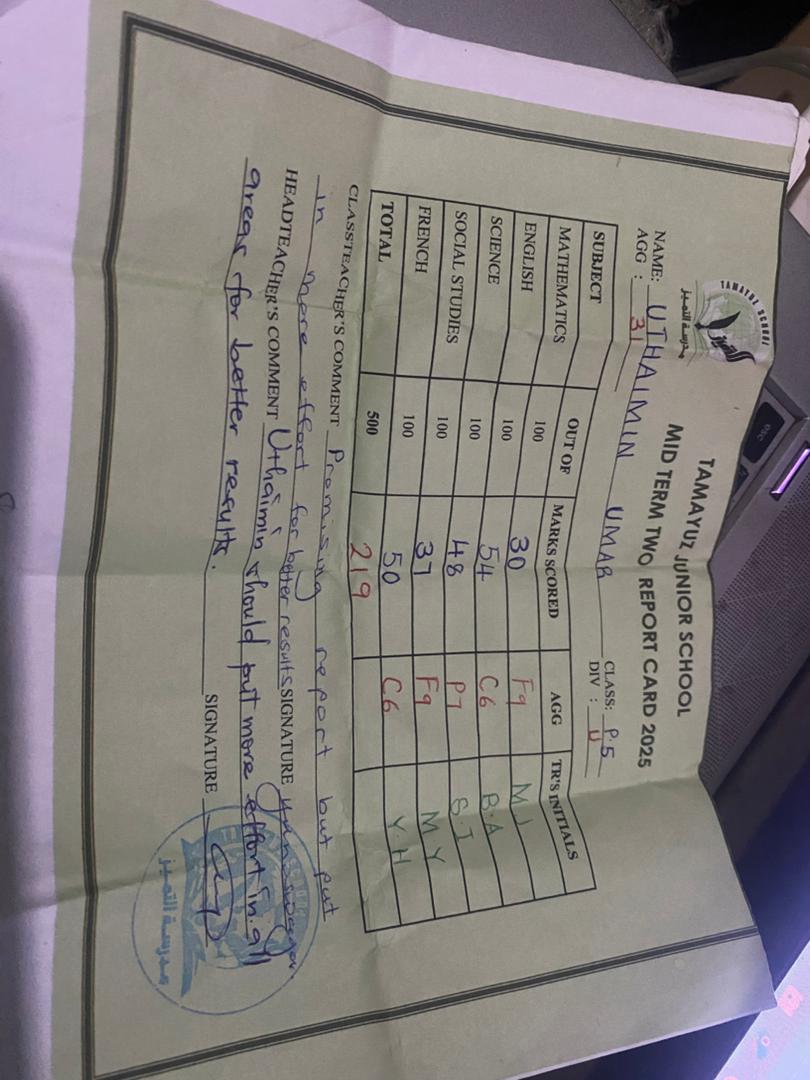 TAMAYUZ SCHOOL
التميز
مدرسة التميز
TAMAYUZ JUNIOR SCHOOL
MID TERM TWO REPORT CARD 2025
NAME: UTHAIMIN UMAR CLASS: P.5
AGG : 31 DIV : U
SUBJECT OUT OF MARKS SCORED AGG TR'S INITIALS
MATHEMATICS 100 30 F9 M.J
ENGLISH 100 54 C6 B.A
SCIENCE 100 48 P7 S.I
SOCIAL STUDIES 100 37 F9 M.Y
FRENCH 100 50 C6 Y.H
TOTAL 500 219
CLASSTEACHER'S COMMENT Promising report but put
in more effort for better results SIGNATURE
HEADTEACHER'S COMMENT Uthaimin should put more effort in all
areas for better results. SIGNATURE
مدرسة التميز
esc